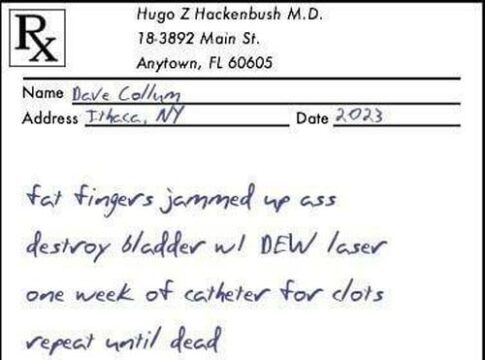 Rx
Hugo Z Hackenbush M.D.
18-3892 Main St.
Anytown, FL 60605
Name Dave Collum
Address Ithaca, NY Date 2023
fat fingers jammed up ass
destroy bladder w/ DEW laser
one week of catheter for clots
repeat until dead